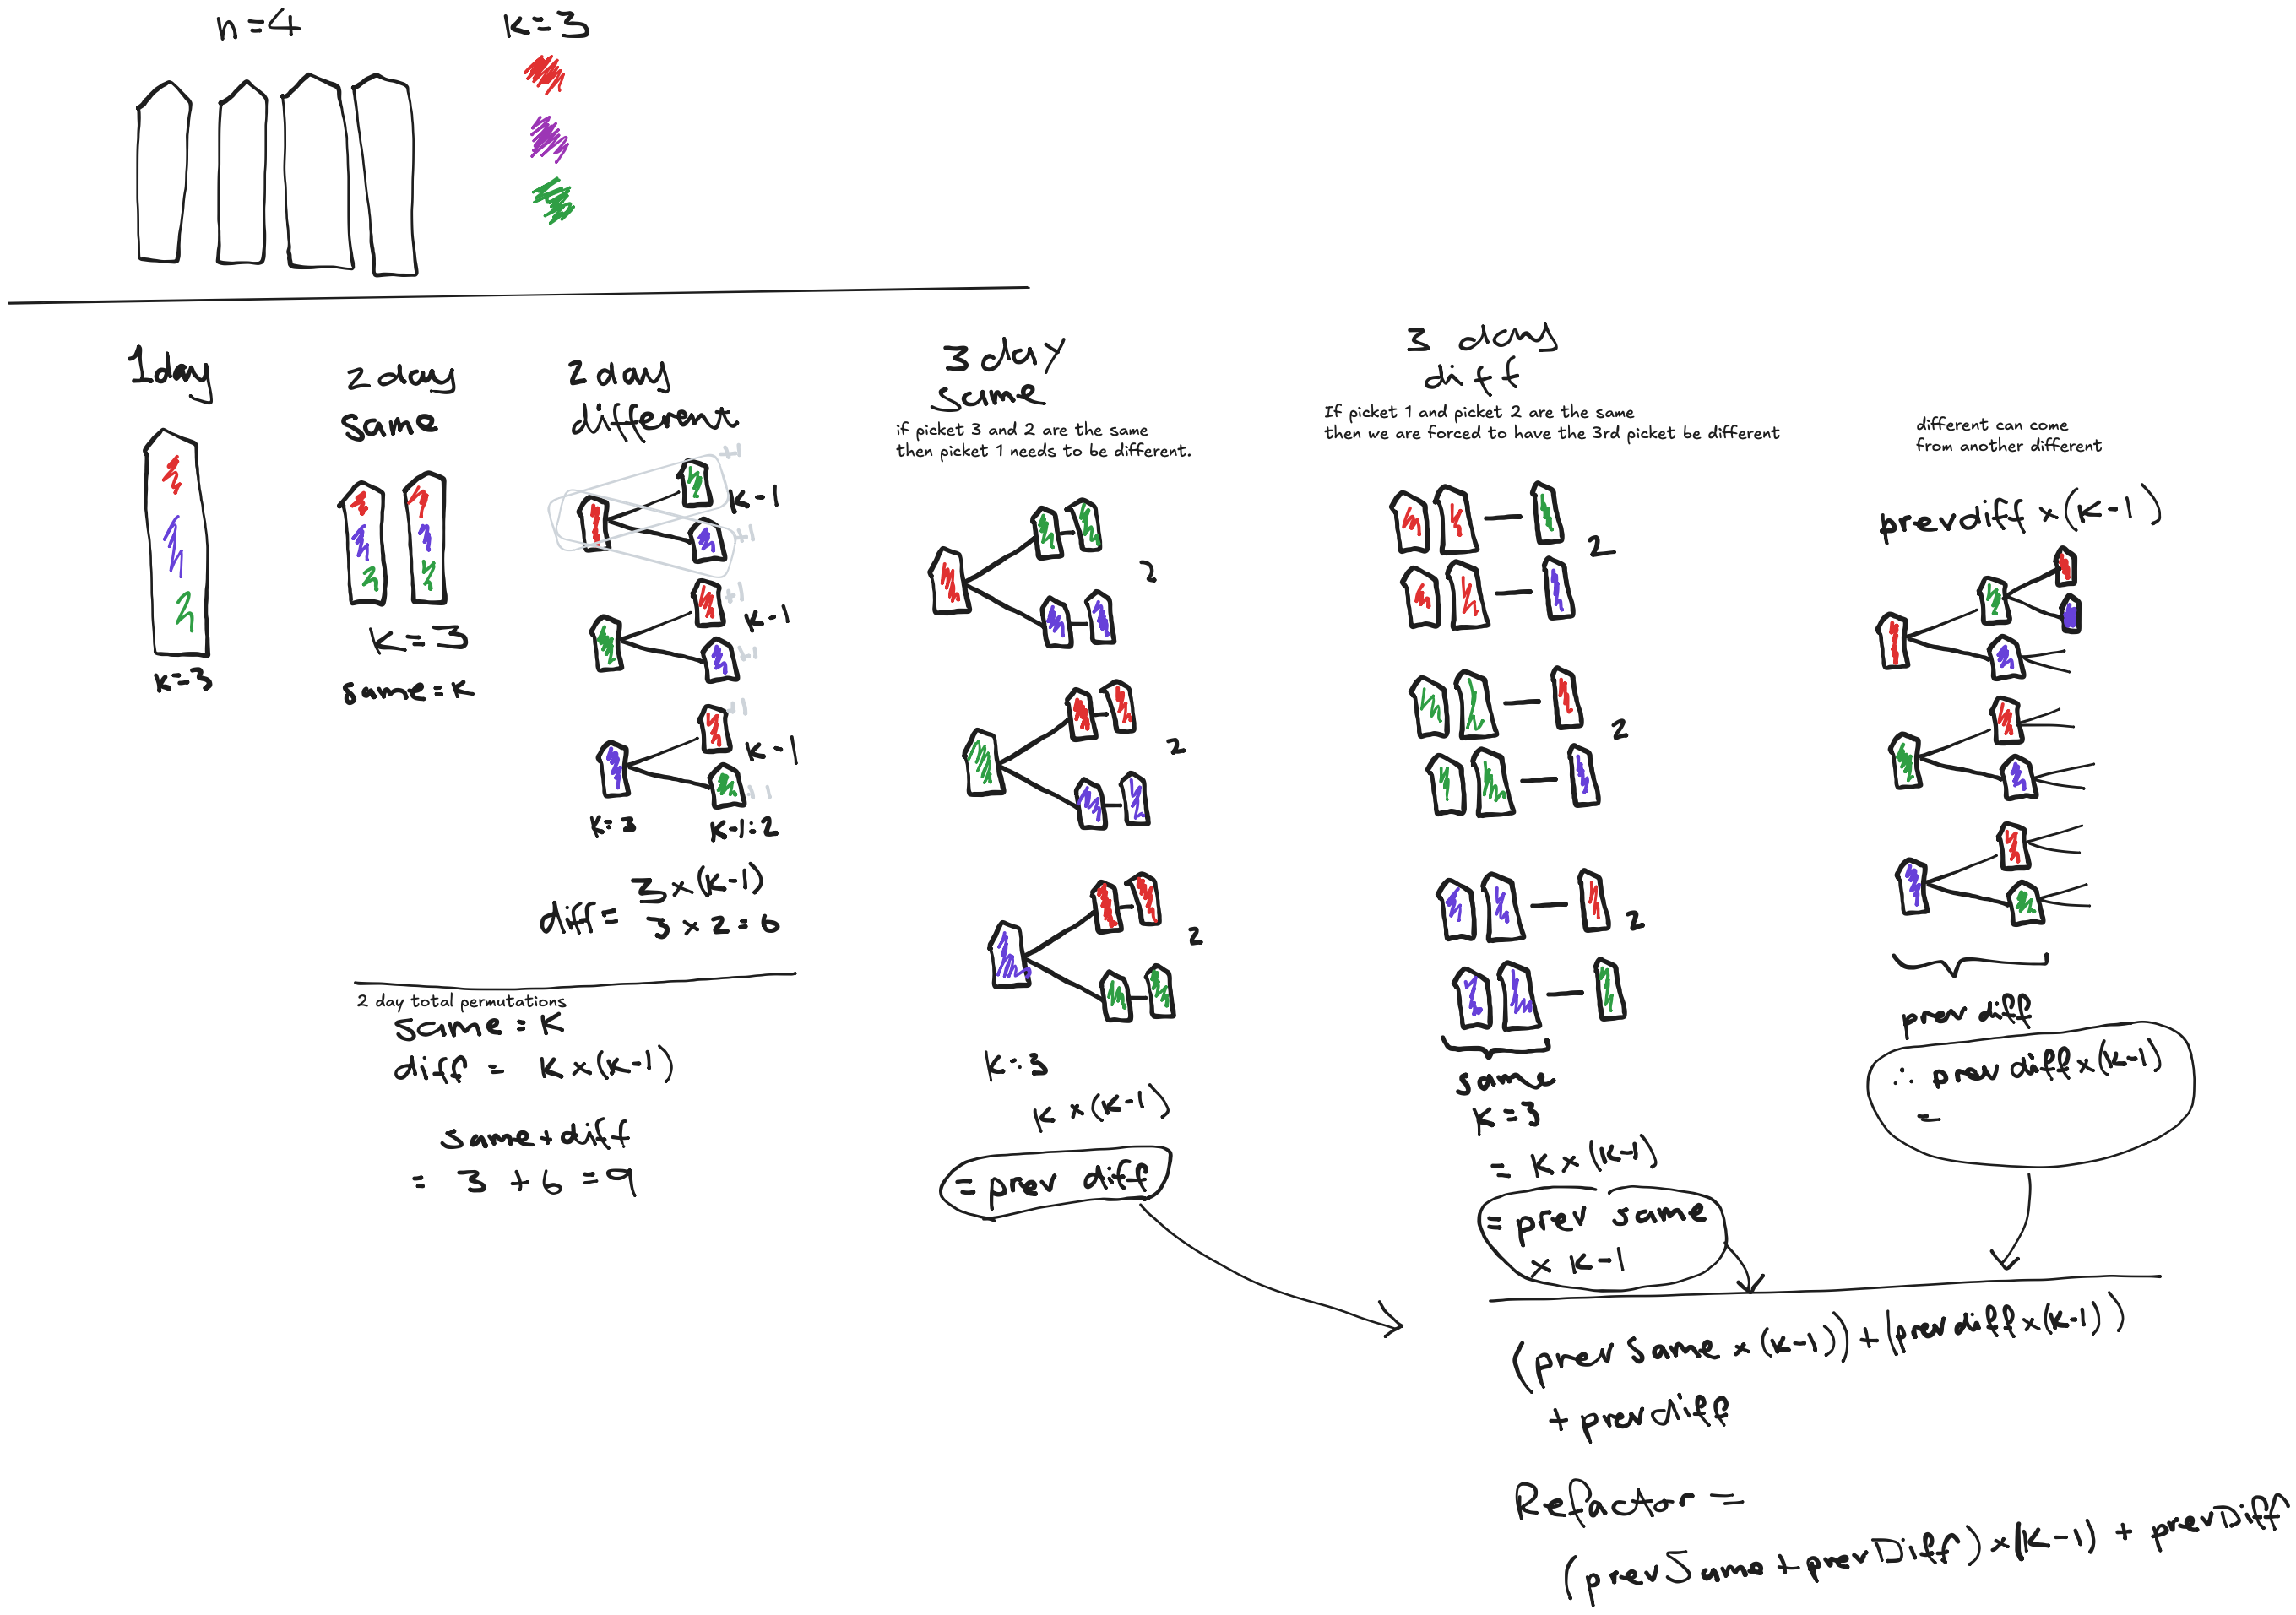 n=4
k=3
1day
k=3
2 day
same
k=3
same=k
2 day
different
+1
k-1
+1
+1
k-1
+1
+1
k-1
+1
k=3
k-1=2
diff= 3×(k-1)
3×2=6
2 day total permutations
same=k
diff = k×(k-1)
same+diff
= 3+6=9
3 day
same
if picket 3 and 2 are the same
then picket 1 needs to be different.
2
2
2
k=3
k×(k-1)
= prev diff
3 day
diff
If picket 1 and picket 2 are the same
then we are forced to have the 3rd picket be different
2
2
2
same
k=3
= k×(k-1)
= prev same
× k-1
different can come
from another different
prev diff ×(k-1)
prev diff
∴ prev diff×(k-1)
=
(prev same ×(k-1))+(prev diff×(k-1))
+ prev diff
Refactor =
(prevSame+prevDiff)×(k-1) + prevDiff